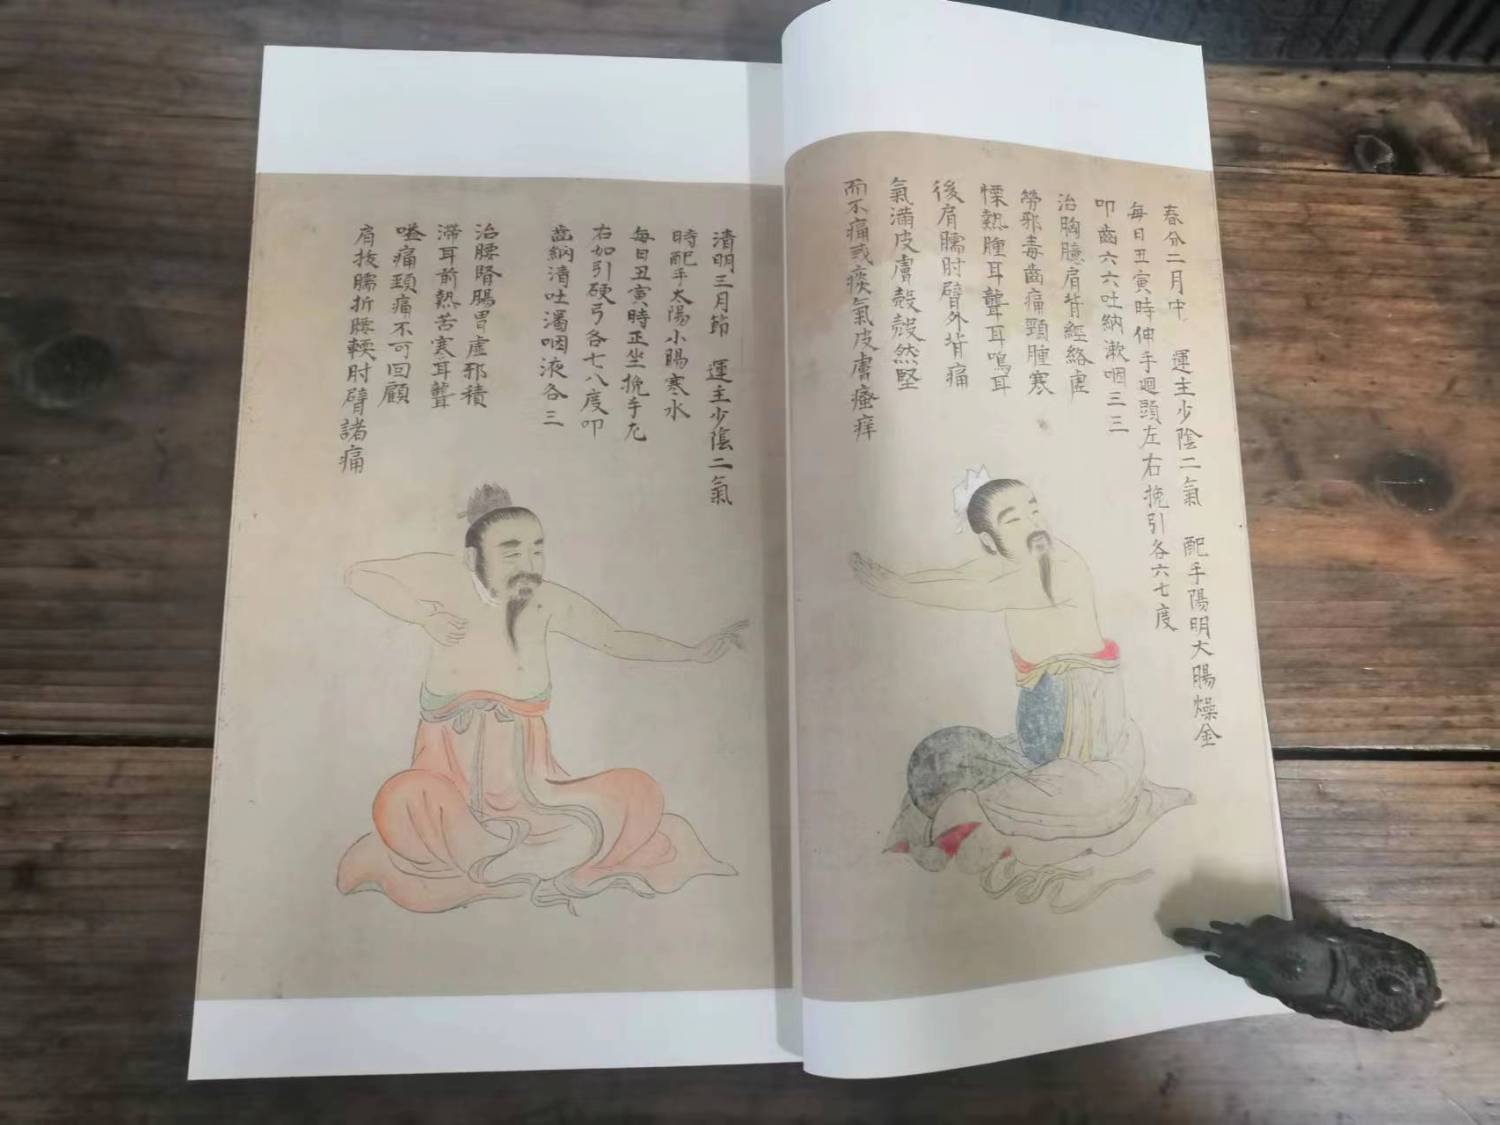 春分二月中　運主少陰二氣　配手陽明大腸燥金
每日丑寅時伸手迴頭左右挽引各六七度
叩齒六六吐納漱咽三三
治胸臆肩背經絡虛
勞邪毒齒痛頸腫寒
慄熱腫耳聾耳鳴耳
後肩臑肘臂外背痛
氣滿皮膚殼殼然堅
而不痛或痰氣皮膚瘙痒
清明三月節　運主少陰二氣
時配手太陽小腸寒水
每日丑寅時正坐挽手左
右如引硬弓各七八度叩
齒納清吐濁咽液各三
治腰腎腸胃虛邪積
滯耳前熱苦寒耳聾
嗌痛頸痛不可回顧
肩拔臑折腰輭肘臂諸痛